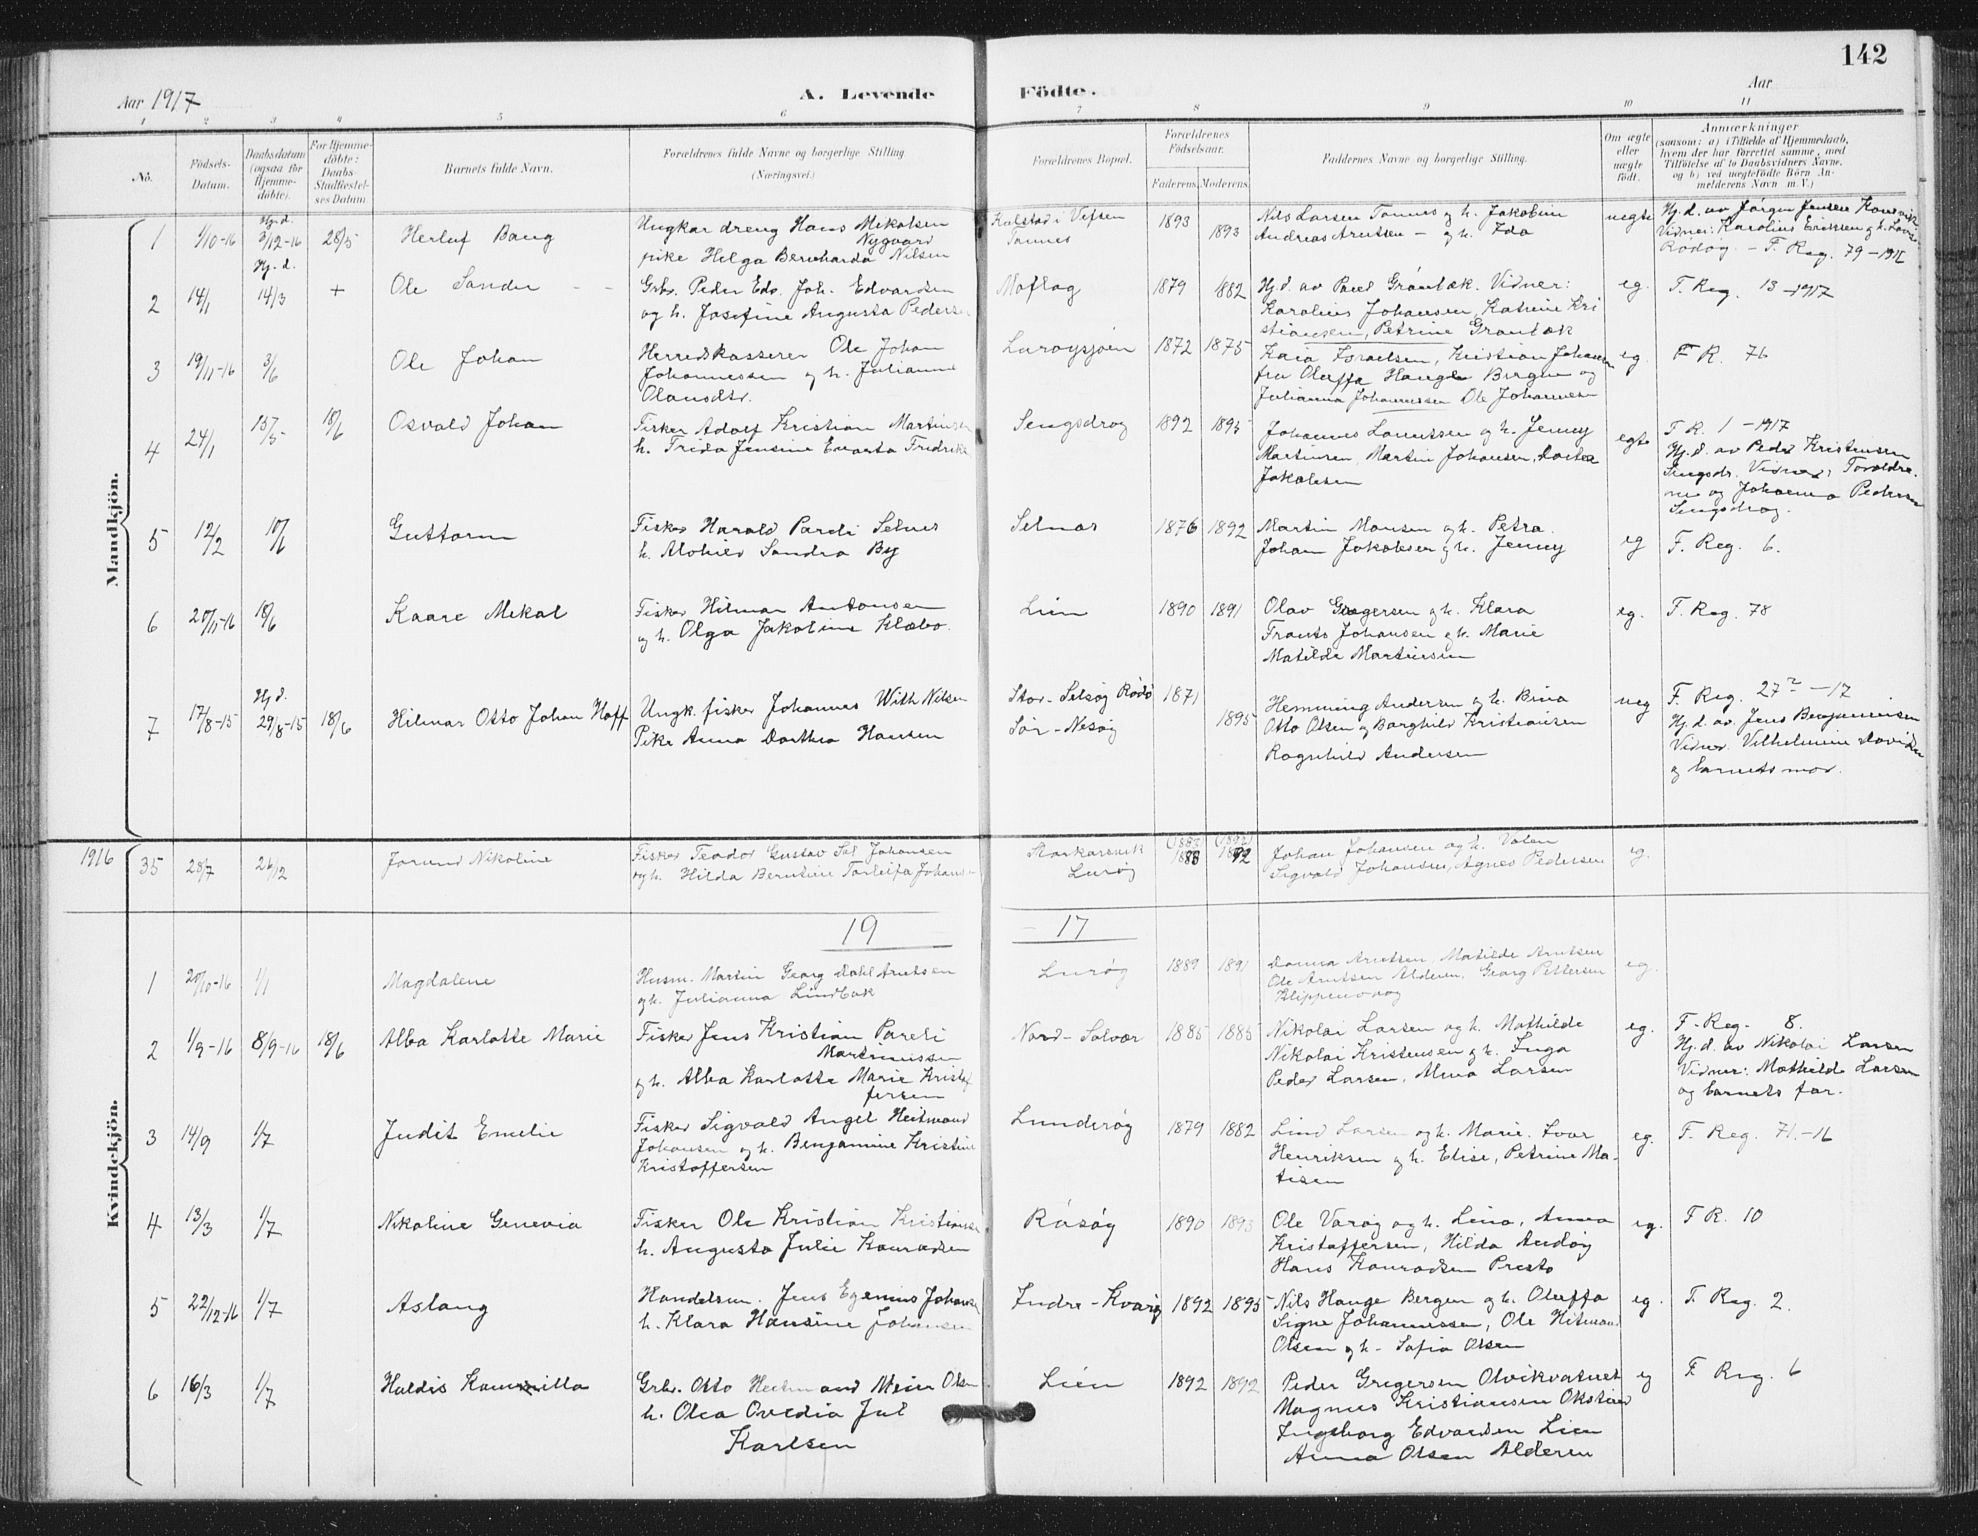 142
Aar 1917
A. Levende Födte.
Aar
1 2 3 4 5 6 7 8 9 10 11
No.
Födsels-Datum.
Daabsdatum (ogsaa for Hjemme-döbte).
For Hjemme-döbte: Daabs Stadfæstelses Datum
Barnets fulde Navn.
Forældrenes fulde Navne og borgerlige Stilling
(Næringsvei.)
Forældrenes Bopæl.
Forældrenes Födselsaar.
Faderens. Moderens.
Faddernes Navne og borgerlige Stilling.
Om ægte eller uægte födt.
Anmærkninger
(saasom: a) i Tilfælde af Hjemmedaab,
hvem der har forrettet samme, med
Tilföielse af to Daabsvidners Navne,
og b) ved uægtefödte Börn An-
melderens Navn m. V.)
Mandkjön.
1 1/10-16 Hj.d. 3/12-16 28/5 Herluf Bang
Ungkar dreng Hans Mikalsen
Nygaard
pike Helga Bernharda Nilsen
i Vefsen
Tonnes
1893 1893
Nils Larsen Tonnes og h. Jakobine
Andreas Arntsen - og h. Ida
uegte
Hj.d. av Jørgen Jensen
Vidner: Karolius Eriksen og h.
Rødøy - F. Reg. 79 - 1916
2 14/1 Hj.d. 14/3 + Ole Sander
Grbr. Peder Edv. Joh. Edvardsen
og h. Josefine Augusta Peders
Moflag
1879 1882
Hj.d. av Paul Grønbæk. Vidner:
Karolius Johansen, Katrine Kri
stiansen, Petrine Grønbæk
eg.
F. Reg. 13 - 1917
3 19/11-16 3/6 Ole Johan
Herredskasserer Ole Johan
Johannessen og h. Julianna
Olausdtr.
Lurøysjøen
1872 1875
Kaia Israelsen, Kristian Johansen
fru Oluffa Hauge Bergen og
Julianna Johannessen Ole Johannesen
eg.
F R. 76
4 24/1 13/5 18/6 Osvald Johan
Fisker Adolf Kristian Martinsen
h. Frida Jensine Evarta Fredrikke
Sengsdrag
1892 1895
Johannes Lorntsen og h. Jenny
Martinsen, Martin Johansen, Dortea
Jakobsen
egte
F R. 1 - 1917
Hj.d. av Peder Kristensen
Sengsdr. Vidner: Forældre.
ne og Johanna Pedersen
Sengsdrag.
5 12/2 10/6 Guttorm
Fisker Harald Pareli Selnes
h. Alohild Sandra By
Selnes
1876 1892
Martin Monsen og h. Petra.
Johan Jakobsen og h. Jenny
eg
F. Reg. 6.
6 20/11-16 18/6 Kaare Mekal
Fisker Hilmar Antonsen
og h. Olga Jakobine Klæbo.
Lien
1890 1891
Olav Gregersen og h. Klara
Frants Johansen og h. Marie
Matilde Martinsen
eg.
F. Reg. 78
7 17/8-15 Hj.d. 29/8-15 18/6 Hilmar Otto Johan Hoff
Ungk. fisker Johannes With Nilsen
Pike Anna Dorthea Hansen
Stor-Selsøy Rødø
Sør-Nesøy
1871 1895
Hemming Andersen og h. Bina
Otto Olsen og Borghild Kristiansen
Ragnhild Andersen
ueg
F. Reg. 27 - 17
Hj.d. av. Jens Benjaminsen
Vidner. Vilhelmine Davidsen
og barnets mor.
1916 35 28/7 26/12 Jorund Nikoline
Fisker Teodor Gustav Sal Johansen
og h. Hilda Berntine Torleifa Johansen
Lurøy
(1882) 1888 (1892) 1892
Johan Johansen og h. Valen
Sigvald Johansen, Agnes Pedersen
eg.
19 17
Kvindekjön.
1 20/10-16 1/1 Magdalene
Husm. Martin Georg Dahl Arntsen
og h. Julianna Lindbak
Lurøy
1889 1891
Donna Arntsen, Matilde Arntsen
Ole Arntsen Alderen. Georg Pettersen
eg.
2 1/9-16 8/9-16 18/6 Alba Karlotte Marie
Fisker Jens Kristian Pareli
Martinussen
og h. Alba Karlotte Marie Kristof
fersen
Nord-Solvær
1885 1885
Nikolai Larsen og h. Mathilde
Nikolai Kristensen og h. Inga
Peder Larsen, Alma Larsen
eg.
F-Reg- 8.
Hj.d. av Nikolai Larsen
Vidner: Mathilde Larsen
og barnets far.
3 14/9 1/7 Judit Emelie
Fisker Sigvald Angel Heitmand
Johansen og h. Benjamine Kristine
Kristoffersen
Lunderøy
1879 1882
Lind Larsen og h. Marie. Ivar
Henriksen og h. Elise, Petrine Ma-
tisen
eg.
F. Reg. 71.-16
4 13/3 1/7 Nikoline Genevia
Fisker Ole Kristian Kristiansen
h. Augusta Julie Konradsen
Råsøy
1890 1893
Ole Varøy og h. Lina, Anna
Kristoffersen, Hilda Andøy
Hans Konradsen Presto
eg.
F R. 10
5 22/12-16 1/7 Aslaug
Handelsm. Jens Egenius Johansen
h. Klara Hansine Johansen
Indre-Kvarøy
1892 1895
Nils Hauge Bergen og h. Oluffa
Signe Johannessen, Ole Hitman.
Olsen og h. Sofia Olsen
eg.
F. Reg. 2.
6 16/3 1/7 Haldis Kamilla
Grbr. Otto Heitmand Meier Olsen
h. Olea Ovedia Jul
Karlsen
Lien
1892 1892
Peder Gregersen Olvikvatnet
Magnus Kristiansen
Ingeborg Edvardsen Lien
Anna Olsen Alderen
eg
F. Reg. 6